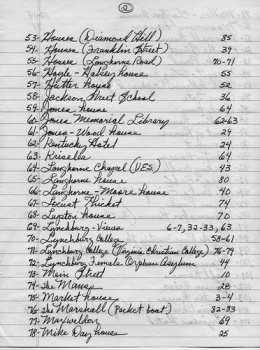 ②
53- Houses (Diamond Hill) 85
54- Houses (Franklin Street) 39
55- Houses (Langhorne Road) 70-71
56- Hoyle-Halsey house 55
57- Hutter house 52
58- Jackson Street School 36
59- Jones house 64
60- Jones Memorial Library 62-63
61- Jones-Wood house 24
62- Kentucky Hotel 24
63- Kriselia 64
64- Langhorne Chapel (V.E.S.) 43
65- Langhorne house 80
66- Langhorne-Moore house 40
67- Locust Thicket 74
68- Lupton house 70
69- Lynchburg-Views 6-7, 32-33, 63
70- Lynchburg College 58-61
71- Lynchburg College (Virginia Christian College) 76-79
72- Lynchburg Female Orphan Asylum
73- Main Street 10
74- The Manse 28
75- Market house 3-4
76- The Marshall (Packet boat) 82-83
77- Maxwelton 69
78- Mike Day house 25